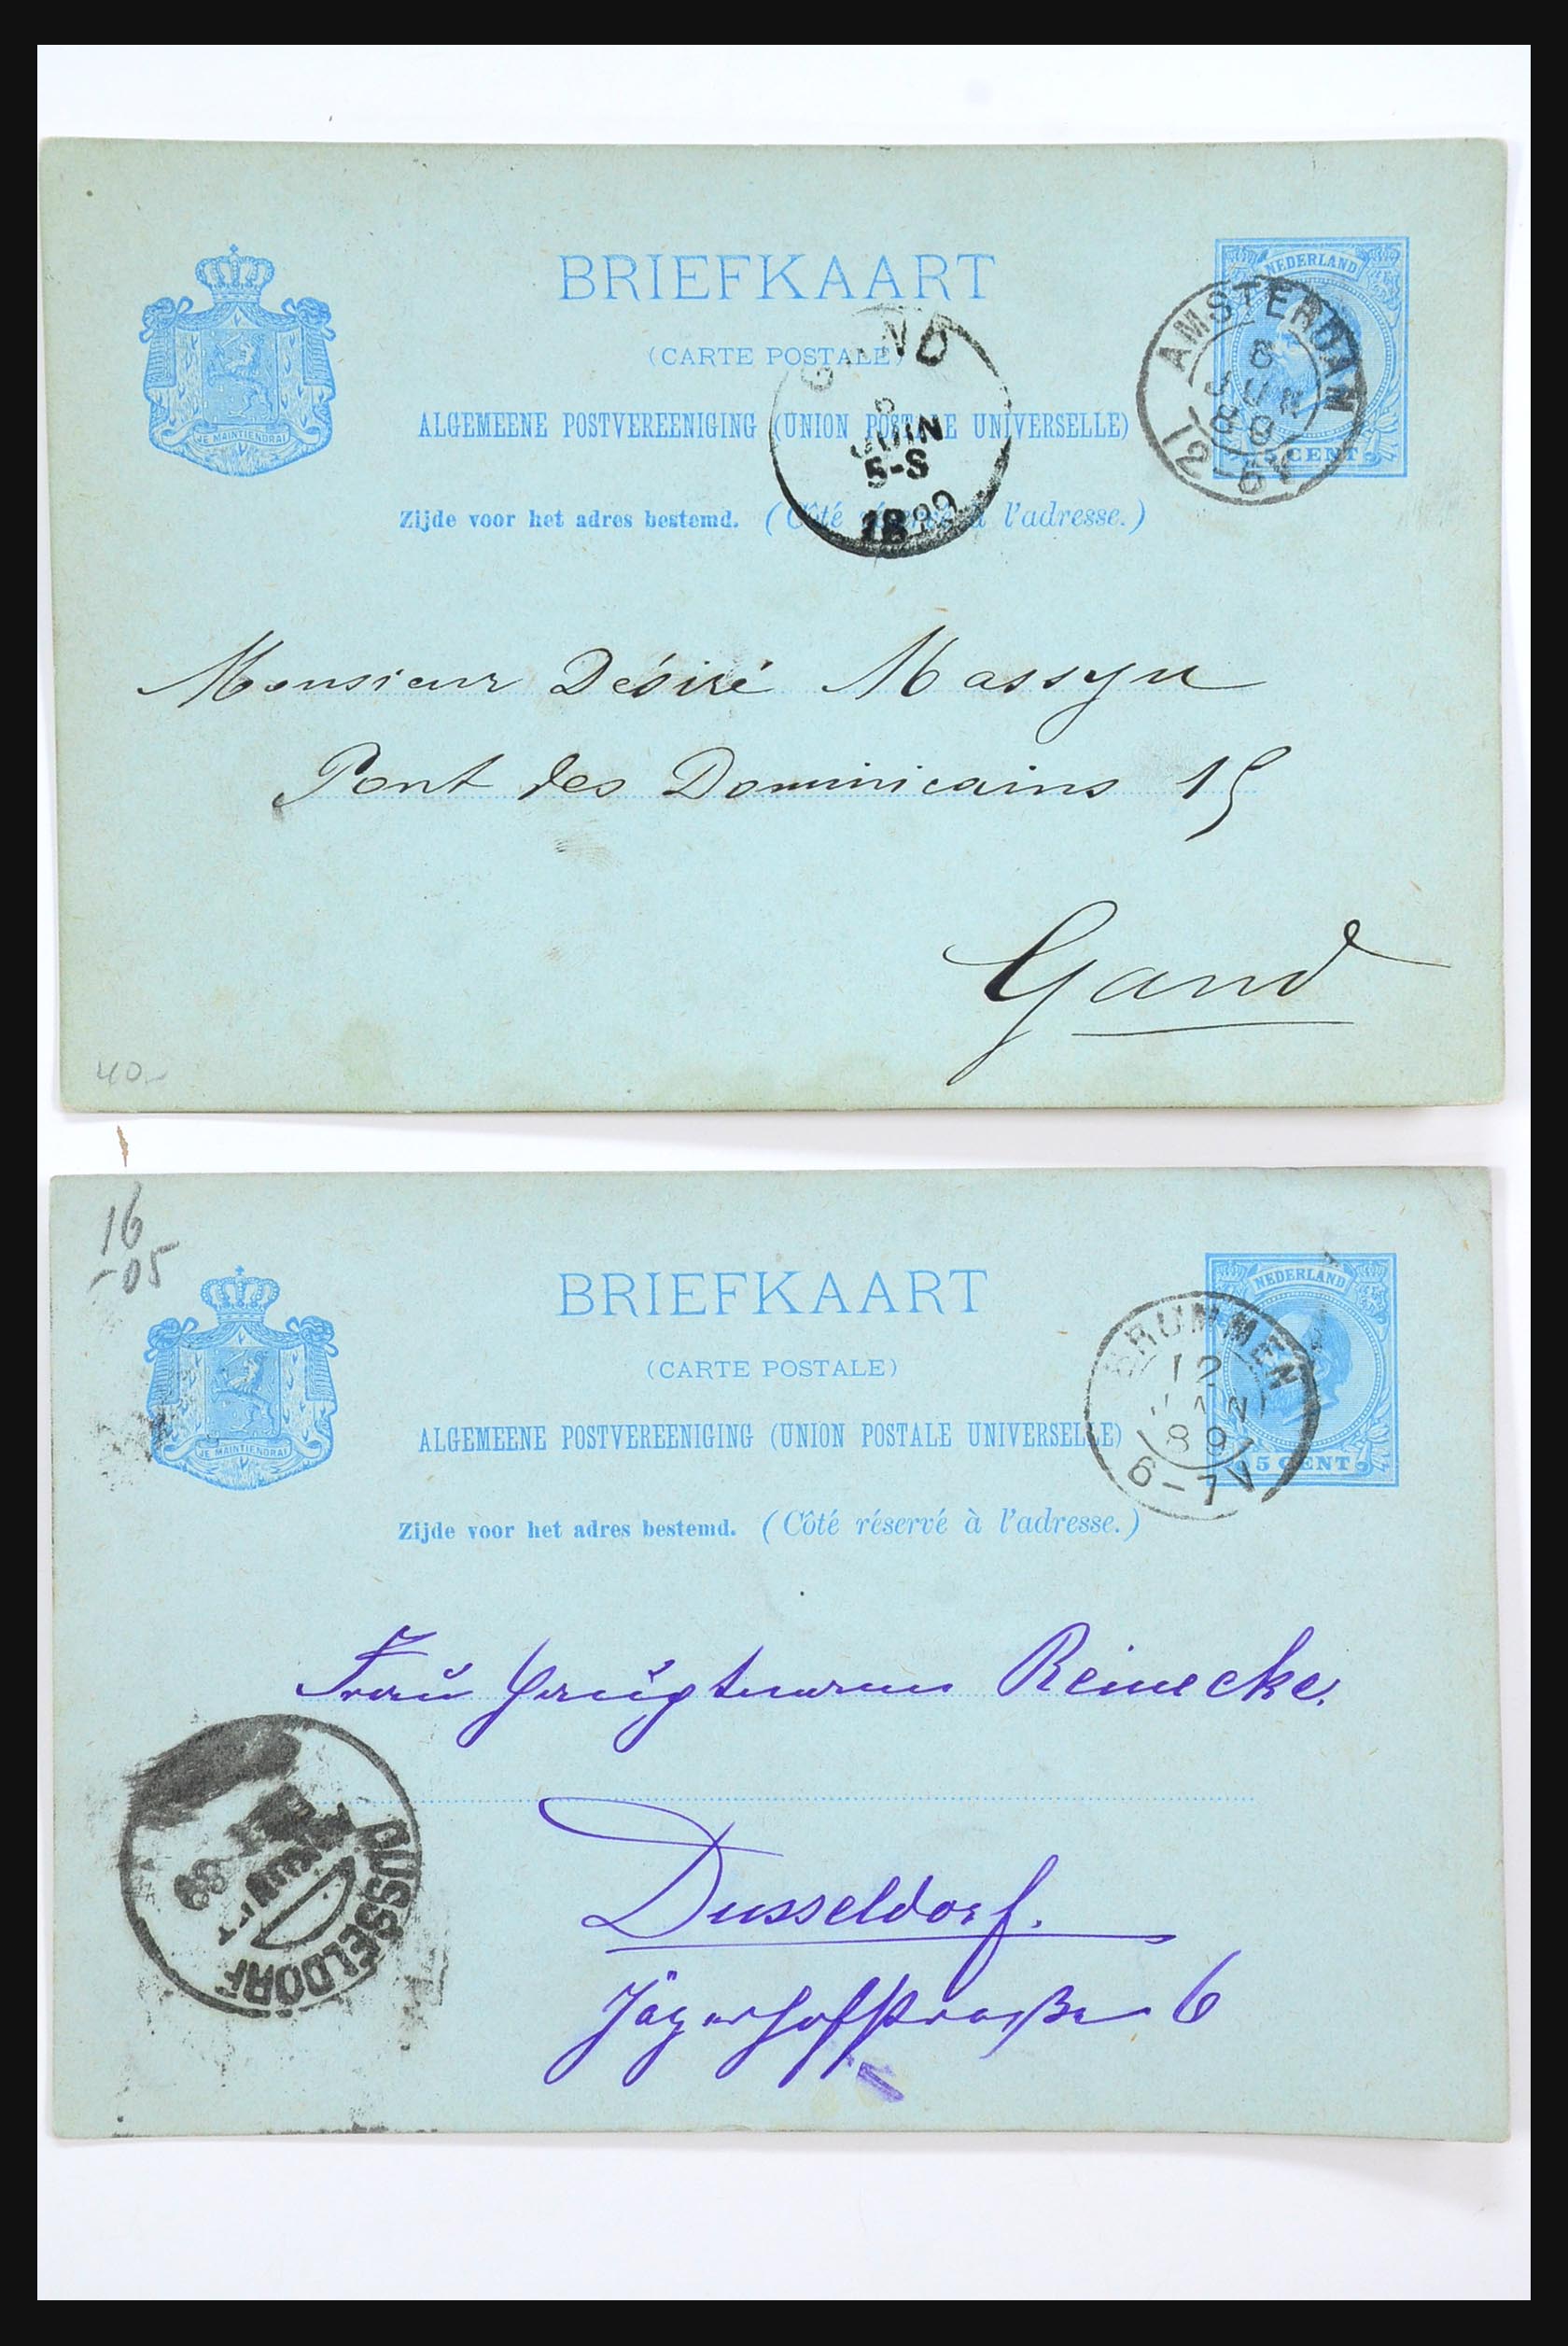 BRIEFKAART
NEDERLAND
(CARTE POSTALE)
ALGEMEENE POSTVEREENIGING (UNION POSTALE UNIVERSELLE)
Zijde voor het adres bestemd. (Côté réservé à l'adresse.)
JE MAINTIENDRAI
5 CENT
AMSTERDAM
8
JUN
89
12-6V
GAND
8
JUIN
5-S
1889
Monsieur Désiré Massyn
Pont des Dominicains 15
Gand
40.-
16
-05
BRIEFKAART
NEDERLAND
(CARTE POSTALE)
ALGEMEENE POSTVEREENIGING (UNION POSTALE UNIVERSELLE)
Zijde voor het adres bestemd. (Côté réservé à l'adresse.)
JE MAINTIENDRAI
5 CENT
BRUMMEN
12
JAN
89
6-7V
Frau Hauptmann Reinecke.
Dusseldorf.
Jägerhofstraße 6
DUSSELDORF